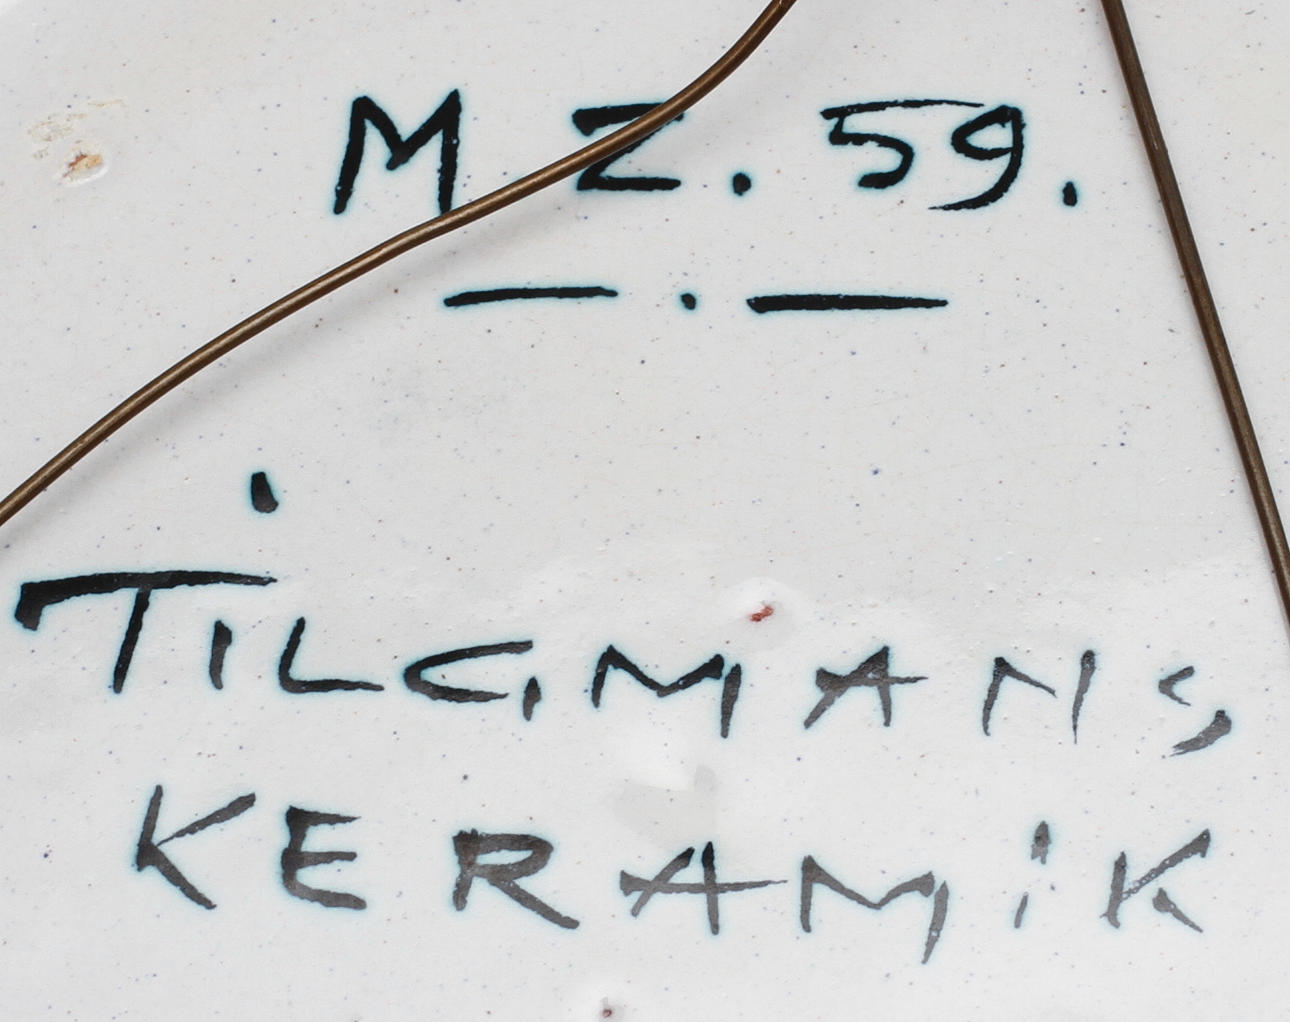 M Z. 59.
— . —
TiLGMANS
KERAMiK